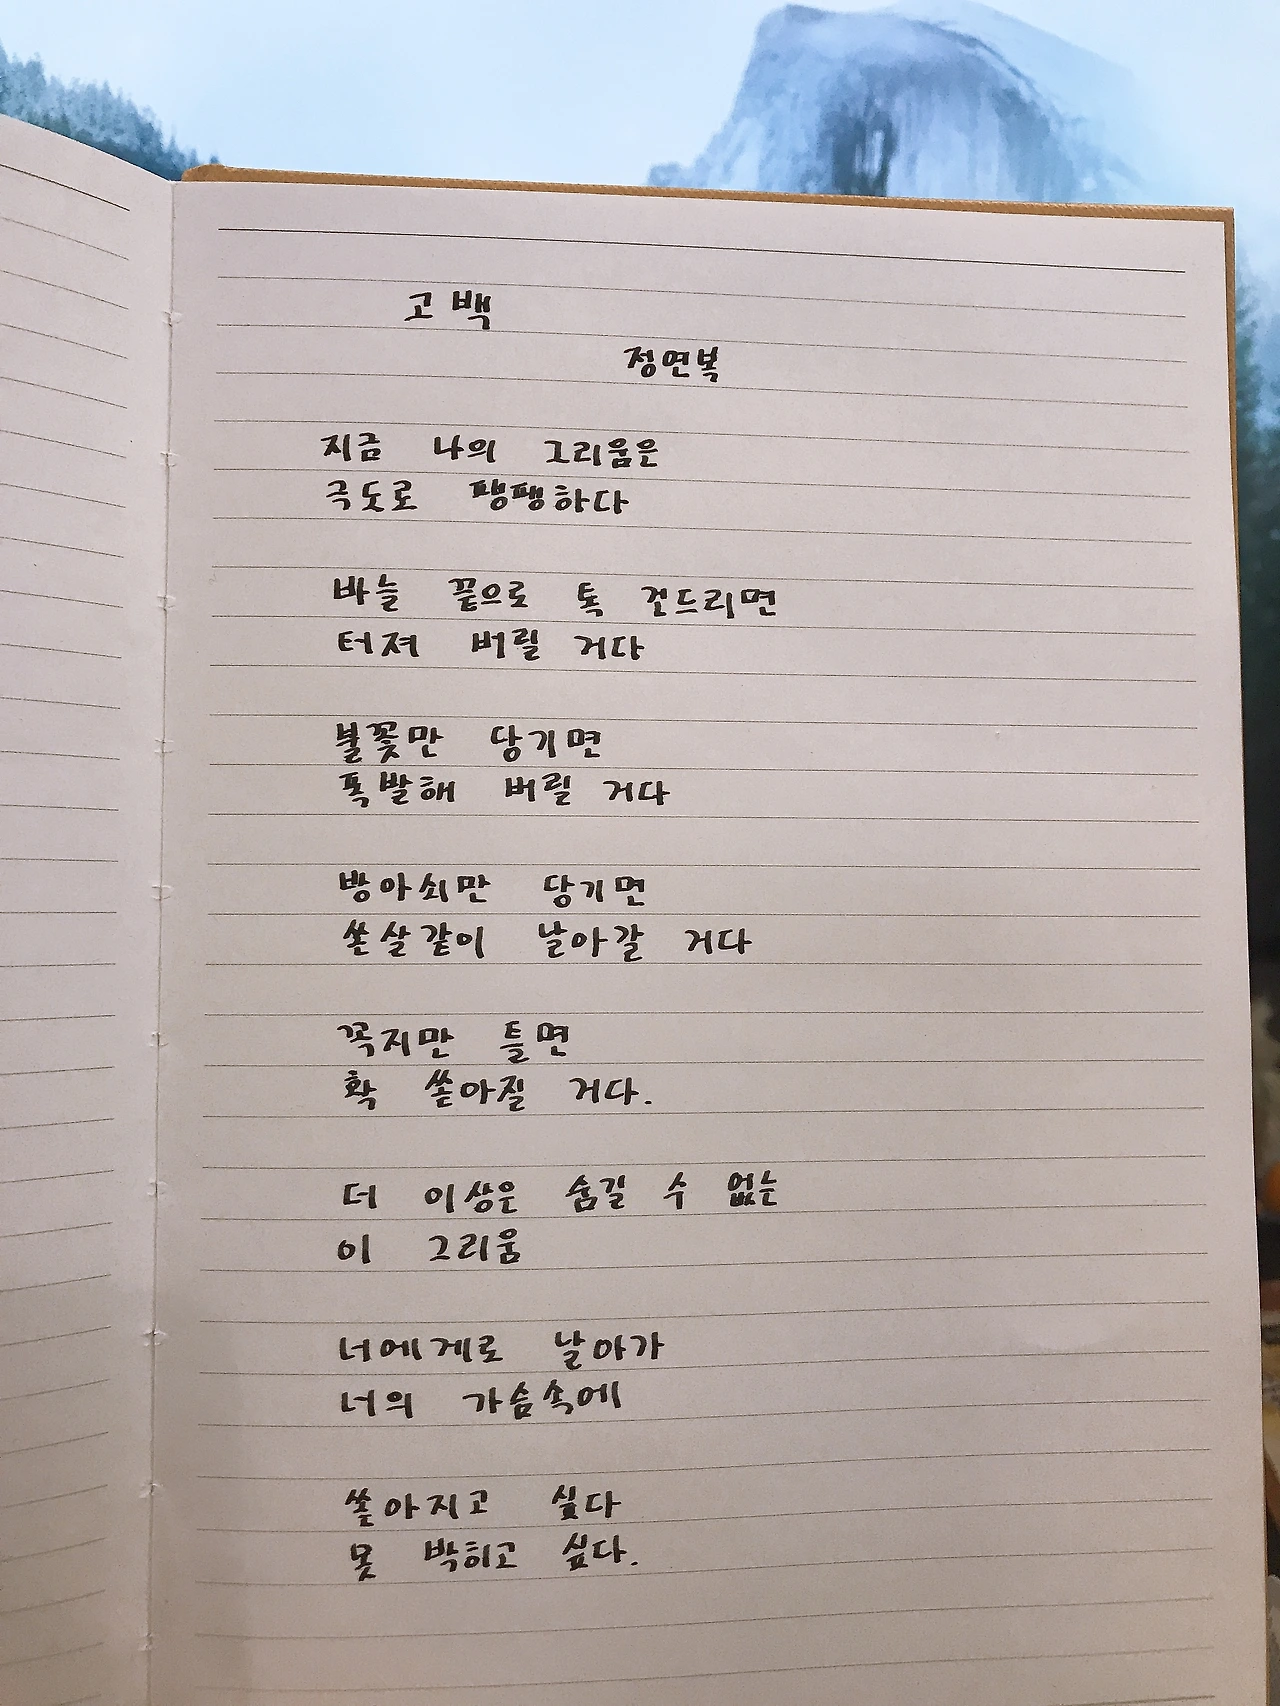 고백
정연복
지금 나의 그리움은
극도로 팽팽하다
바늘 끝으로 톡 건드리면
터져 버릴 거다
불꽃만 당기면
폭발해 버릴 거다
방아쇠만 당기면
쏜살같이 날아갈 거다
꼭지만 틀면
확 쏟아질 거다.
더 이상은 숨길 수 없는
이 그리움
너에게로 날아가
너의 가슴속에
쏟아지고 싶다
못 박히고 싶다.